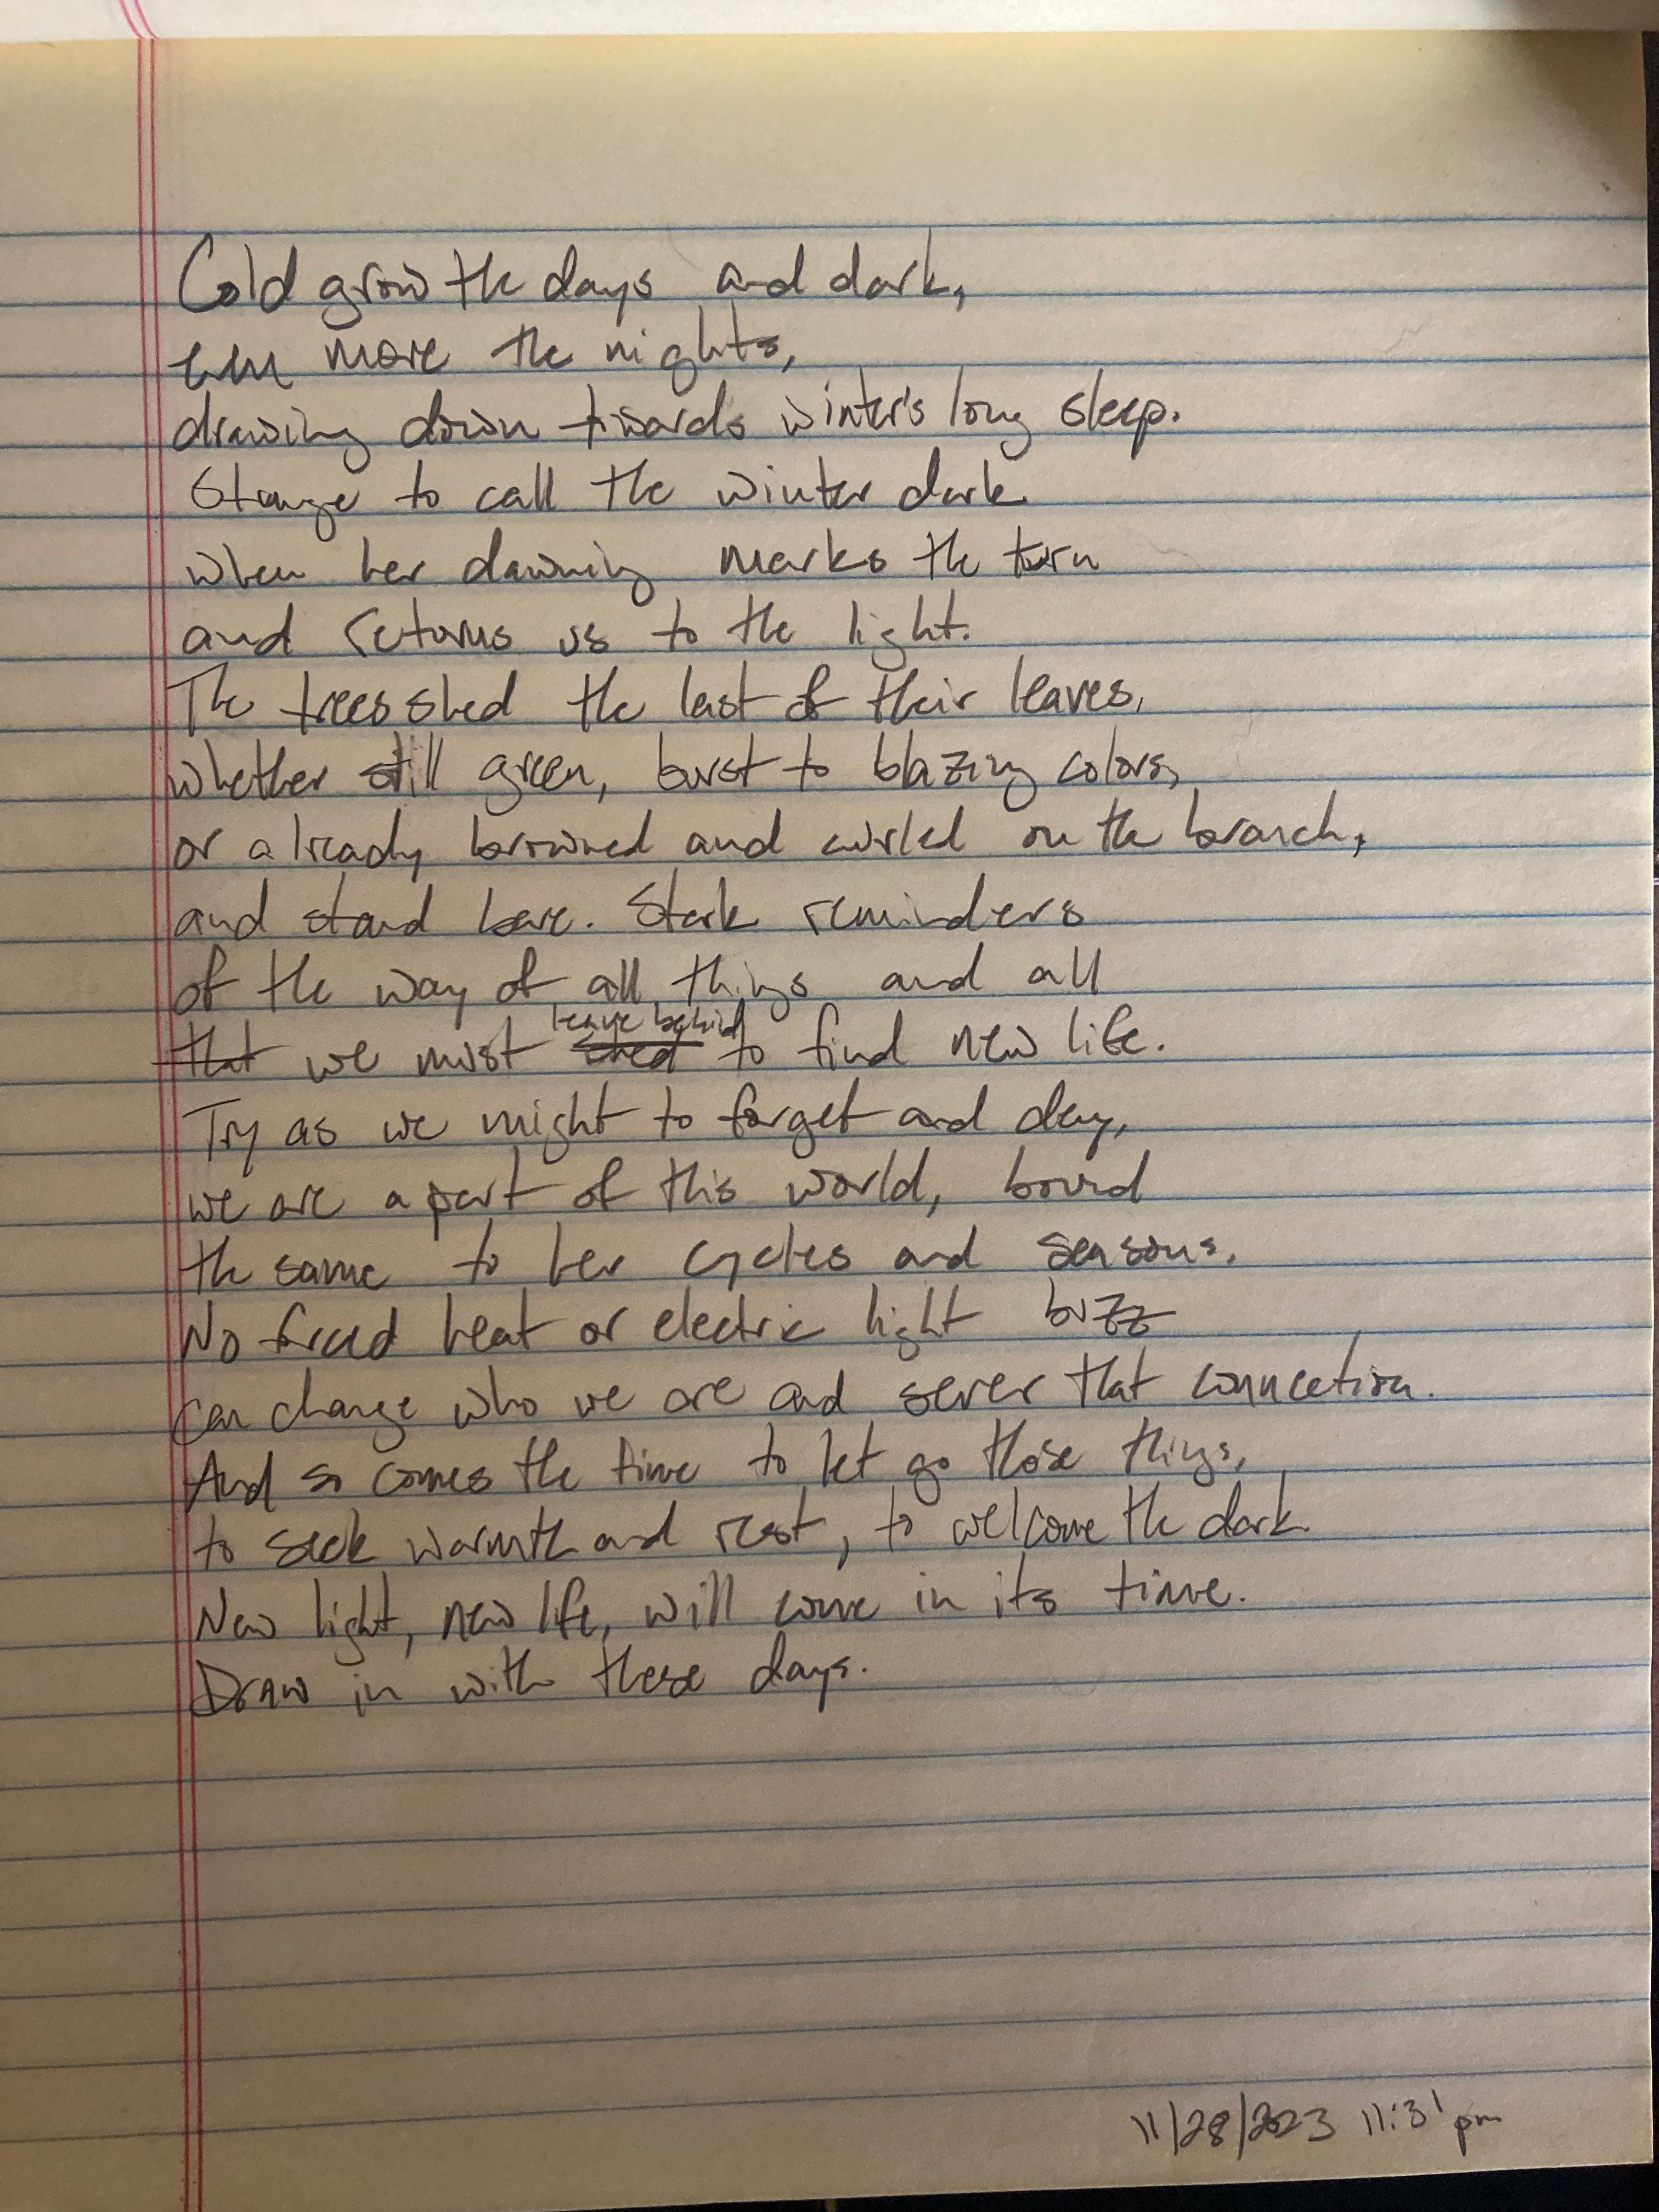 Cold grow the days and dark,
even more the nights,
drawing down towards winter's long sleep.
Stange to call the winter dark
when her dawning marks the turn
and returns us to the light.
The trees shed the last of their leaves,
whether still green, burst to blazing colors,
or already browned and curled on the branch,
and stand bare. Stark reminders
of the way of all things and all
that we must leave behind shed to find new life.
Try as we might to forget and deny,
we are a part of this world, bound
the same to her cycles and seasons.
No forced heat or electric light buzz
can change who we are and sever that connection.
And so comes the time to let go those things,
to seek warmth and rest, to welcome the dark.
New light, new life, will come in its time.
Draw in with these days.
11/28/2023 11:31 pm